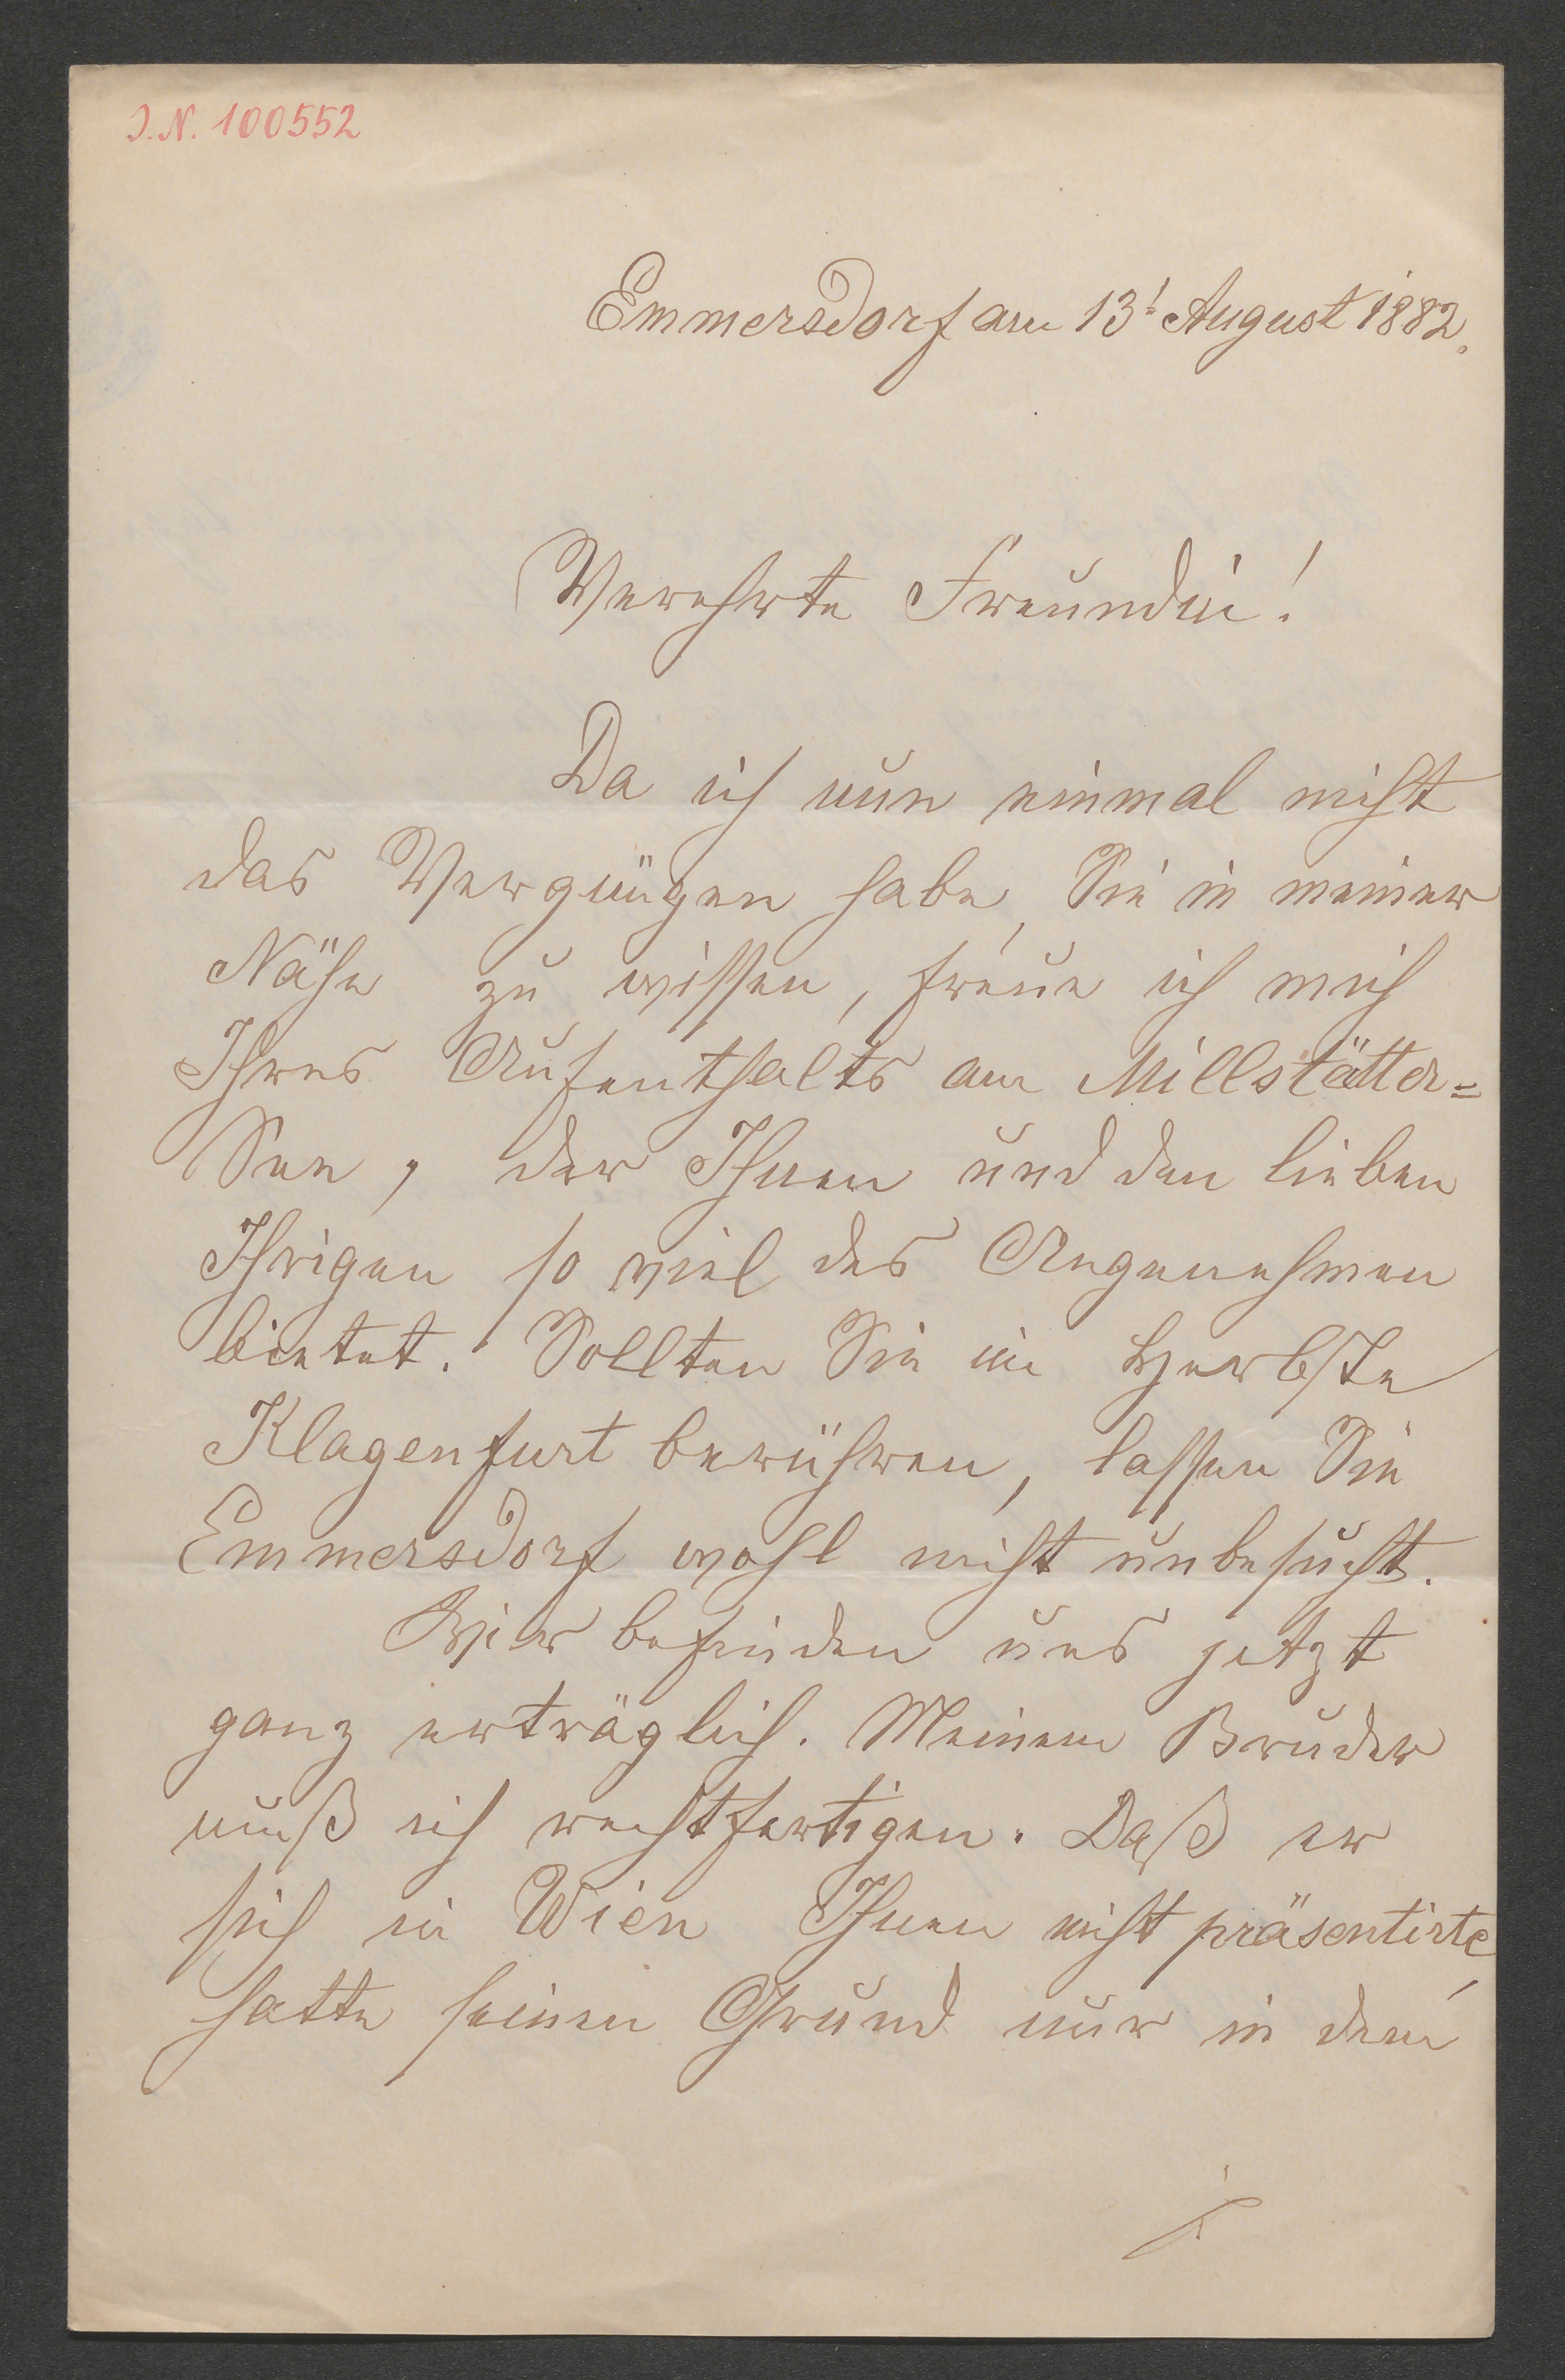 J.N. 100552
Emmersdorf am 13t August 1882.
Verehrte Freundin!
Da ich nun einmal nicht
das Vergnügen habe, Sie in meiner
Nähe zu wissen, freue ich mich
Ihres Aufenthalts am Millstätter=
See, der Ihnen und den lieben
Ihrigen so viel des Angenehmen
bietet. Sollten Sie im Herbste
Klagenfurt berühren, lassen Sie
Emmersdorf wohl nicht unbesucht.
Wir befinden uns jetzt
ganz erträglich. Meinen Bruder
muß ich rechtfertigen. Daß er
sich in Wien Ihnen nicht präsentirte,
hatte seinen Grund nur in dem